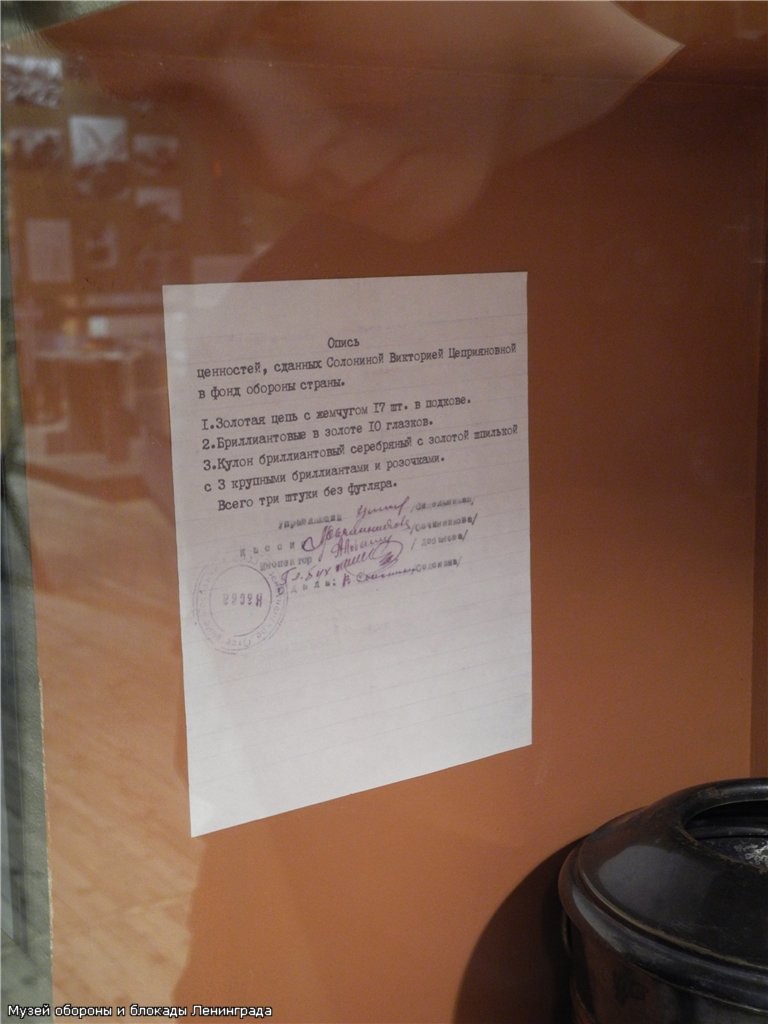 Опись
ценностей, сданных Солониной Викторией Цеприяновной
в фонд обороны страны.
1.Золотая цепь с жемчугом 17 шт. в подкове.
2.Бриллиантовые в золоте 10 глазков.
3.Кулон бриллиантовый серебряный с золотой шпилькой
с 3 крупными бриллиантами и розочками.
Всего три штуки без футляра.
Управляющий
Кассир /Овчинникова/
Инспектор
Гл. Бух
/Солонина/
Музей обороны и блокады Ленинграда